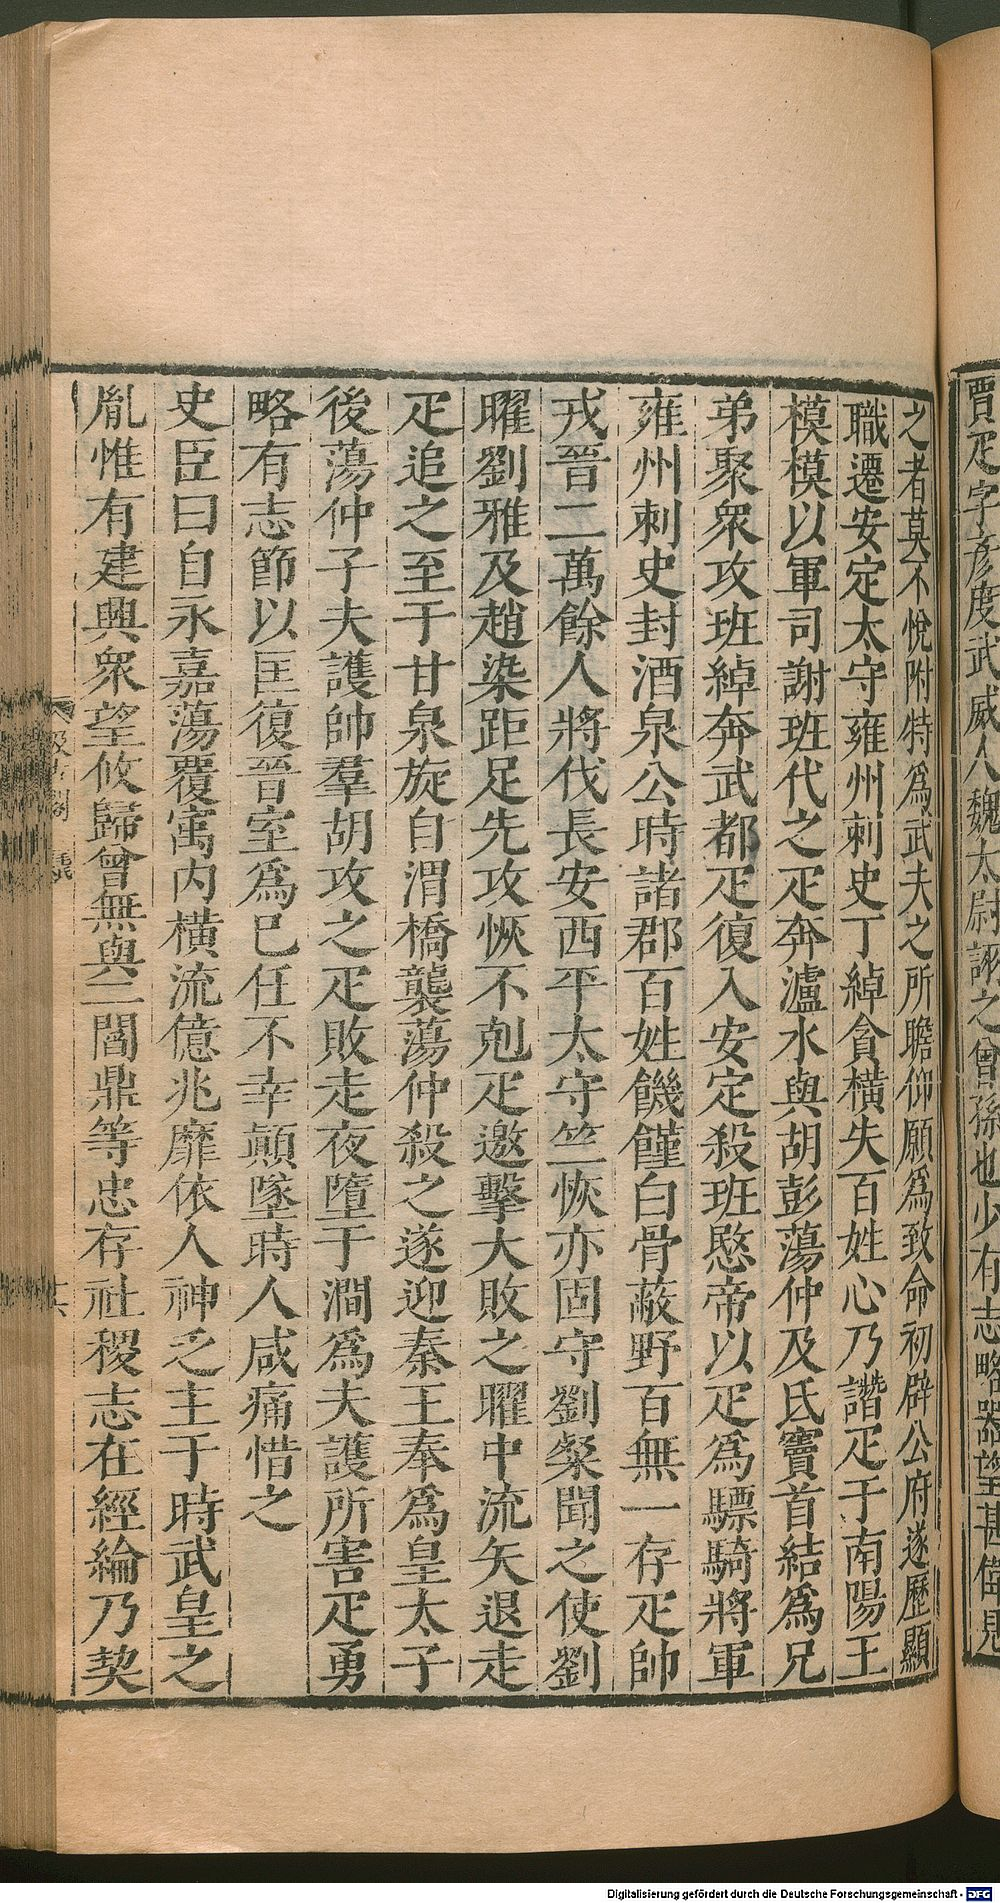 賈疋字彥度武威人魏太尉詡之曾孫也少有志略器望甚偉見
之者莫不悅附特爲武夫之所瞻仰願爲致命初辟公府遂歷顯
職遷安定太守雍州刺史丁綽貪橫失百姓心乃譖疋于南陽王
模模以軍司謝班代之疋奔瀘水與胡彭蕩仲及氐竇首結爲兄
弟聚衆攻班綽奔武都疋復入安定殺班愍帝以疋爲驃騎將軍
雍州刺史封酒泉公時諸郡百姓饑饉白骨蔽野百無一存疋帥
戎晉二萬餘人將伐長安西平太守竺恢亦固守劉粲聞之使劉
曜劉雅及趙染距疋先攻恢不剋疋邀擊大敗之曜中流矢退走
疋追之至于甘泉旋自渭橋襲蕩仲殺之遂迎秦王奉爲皇太子
後蕩仲子夫護帥羣胡攻之疋敗走夜墮于澗爲夫護所害疋勇
略有志節以匡復晉室爲已任不幸顛墜時人咸痛惜之
史臣曰自永嘉蕩覆㝢内橫流億兆靡依人神乏主于時武皇之
胤惟有建興衆望攸歸曾無與二閻鼎等忠存社稷志在經綸乃契
汲古閣
十六
Digitalisierung gefördert durch die Deutsche Forschungsgemeinschaft - DFG